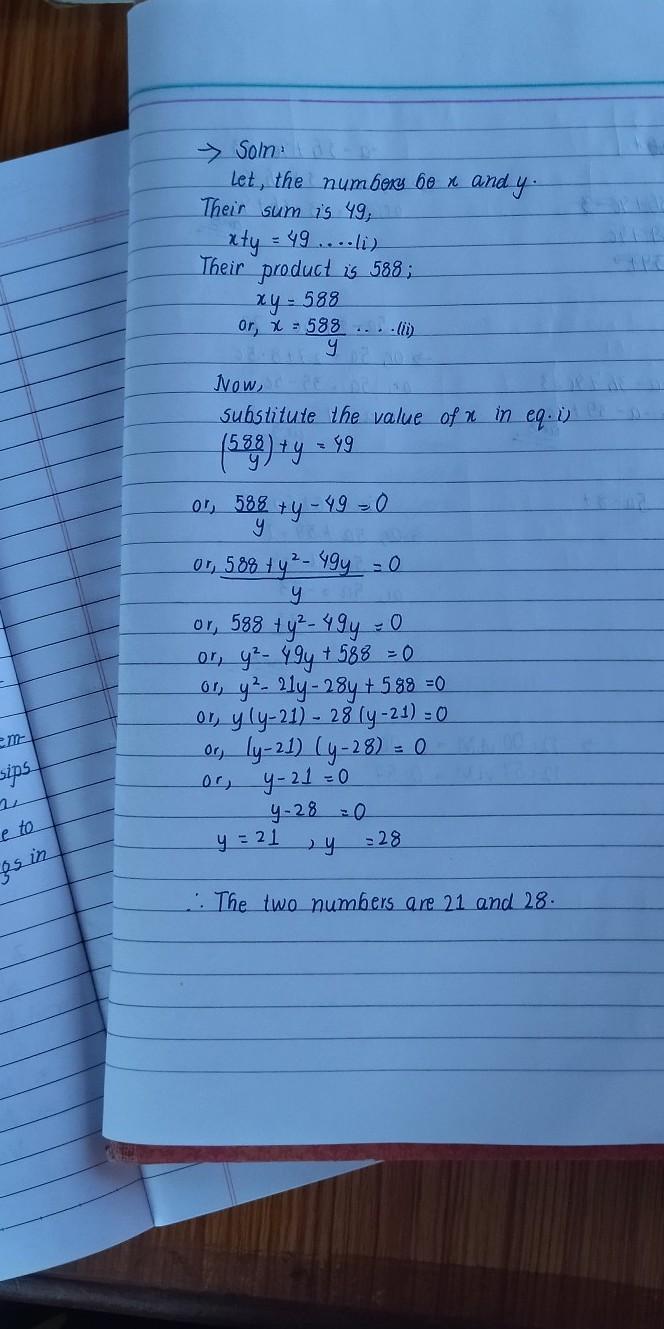 → Soln:
Let, the numbers be x and y.
Their sum is 49,
x+y = 49 ....(i)
Their product is 588;
xy = 588
or, x = 588/y ....(ii)
Now,
substitute the value of x in eq. i)
(588/y) + y = 49
or, 588/y + y - 49 = 0
or, (588 + y² - 49y)/y = 0
or, 588 + y² - 49y = 0
or, y² - 49y + 588 = 0
or, y² - 21y - 28y + 588 = 0
or, y(y-21) - 28(y-21) = 0
or, (y-21) (y-28) = 0
or, y-21 = 0
y-28 = 0
y = 21 , y = 28
∴ The two numbers are 21 and 28.
em-
sips
e to
in